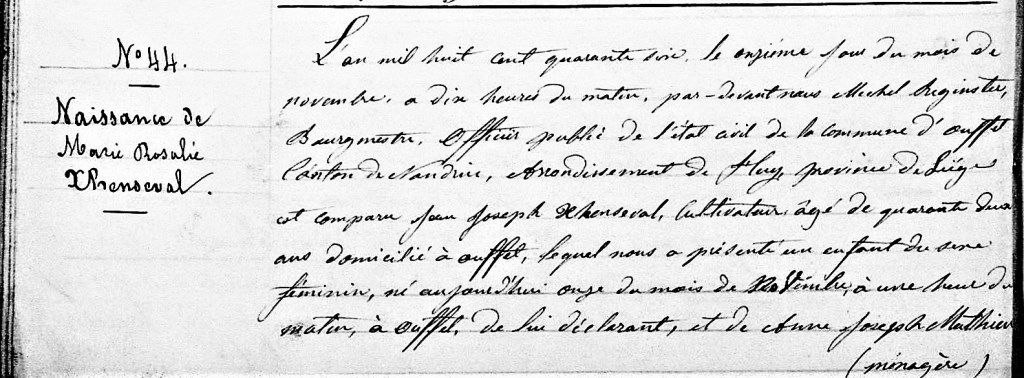 N° 44.
Naissance de
Marie Rosalie
Xhenseval.
L'an mil huit cent quarante six, le onzième jour du mois de
novembre, a dix heures du matin, par-devant nous Michel Reginster,
Bourgmestre, Officier public de l'état civil de la commune d'ouffet
Canton de Nandrin, Arrondissement de Huy, province de Liége
est comparu Jean Joseph Xhenseval, Cultivateur, âgé de quarante deux
ans domicilié à ouffet, lequel nous a présenté un enfant du sexe
féminin, né aujourd'hui onze du mois de Novembre, à une heure du
matin, à ouffet, de lui déclarant, et de Anne Joseph Mathieu
(ménagère)